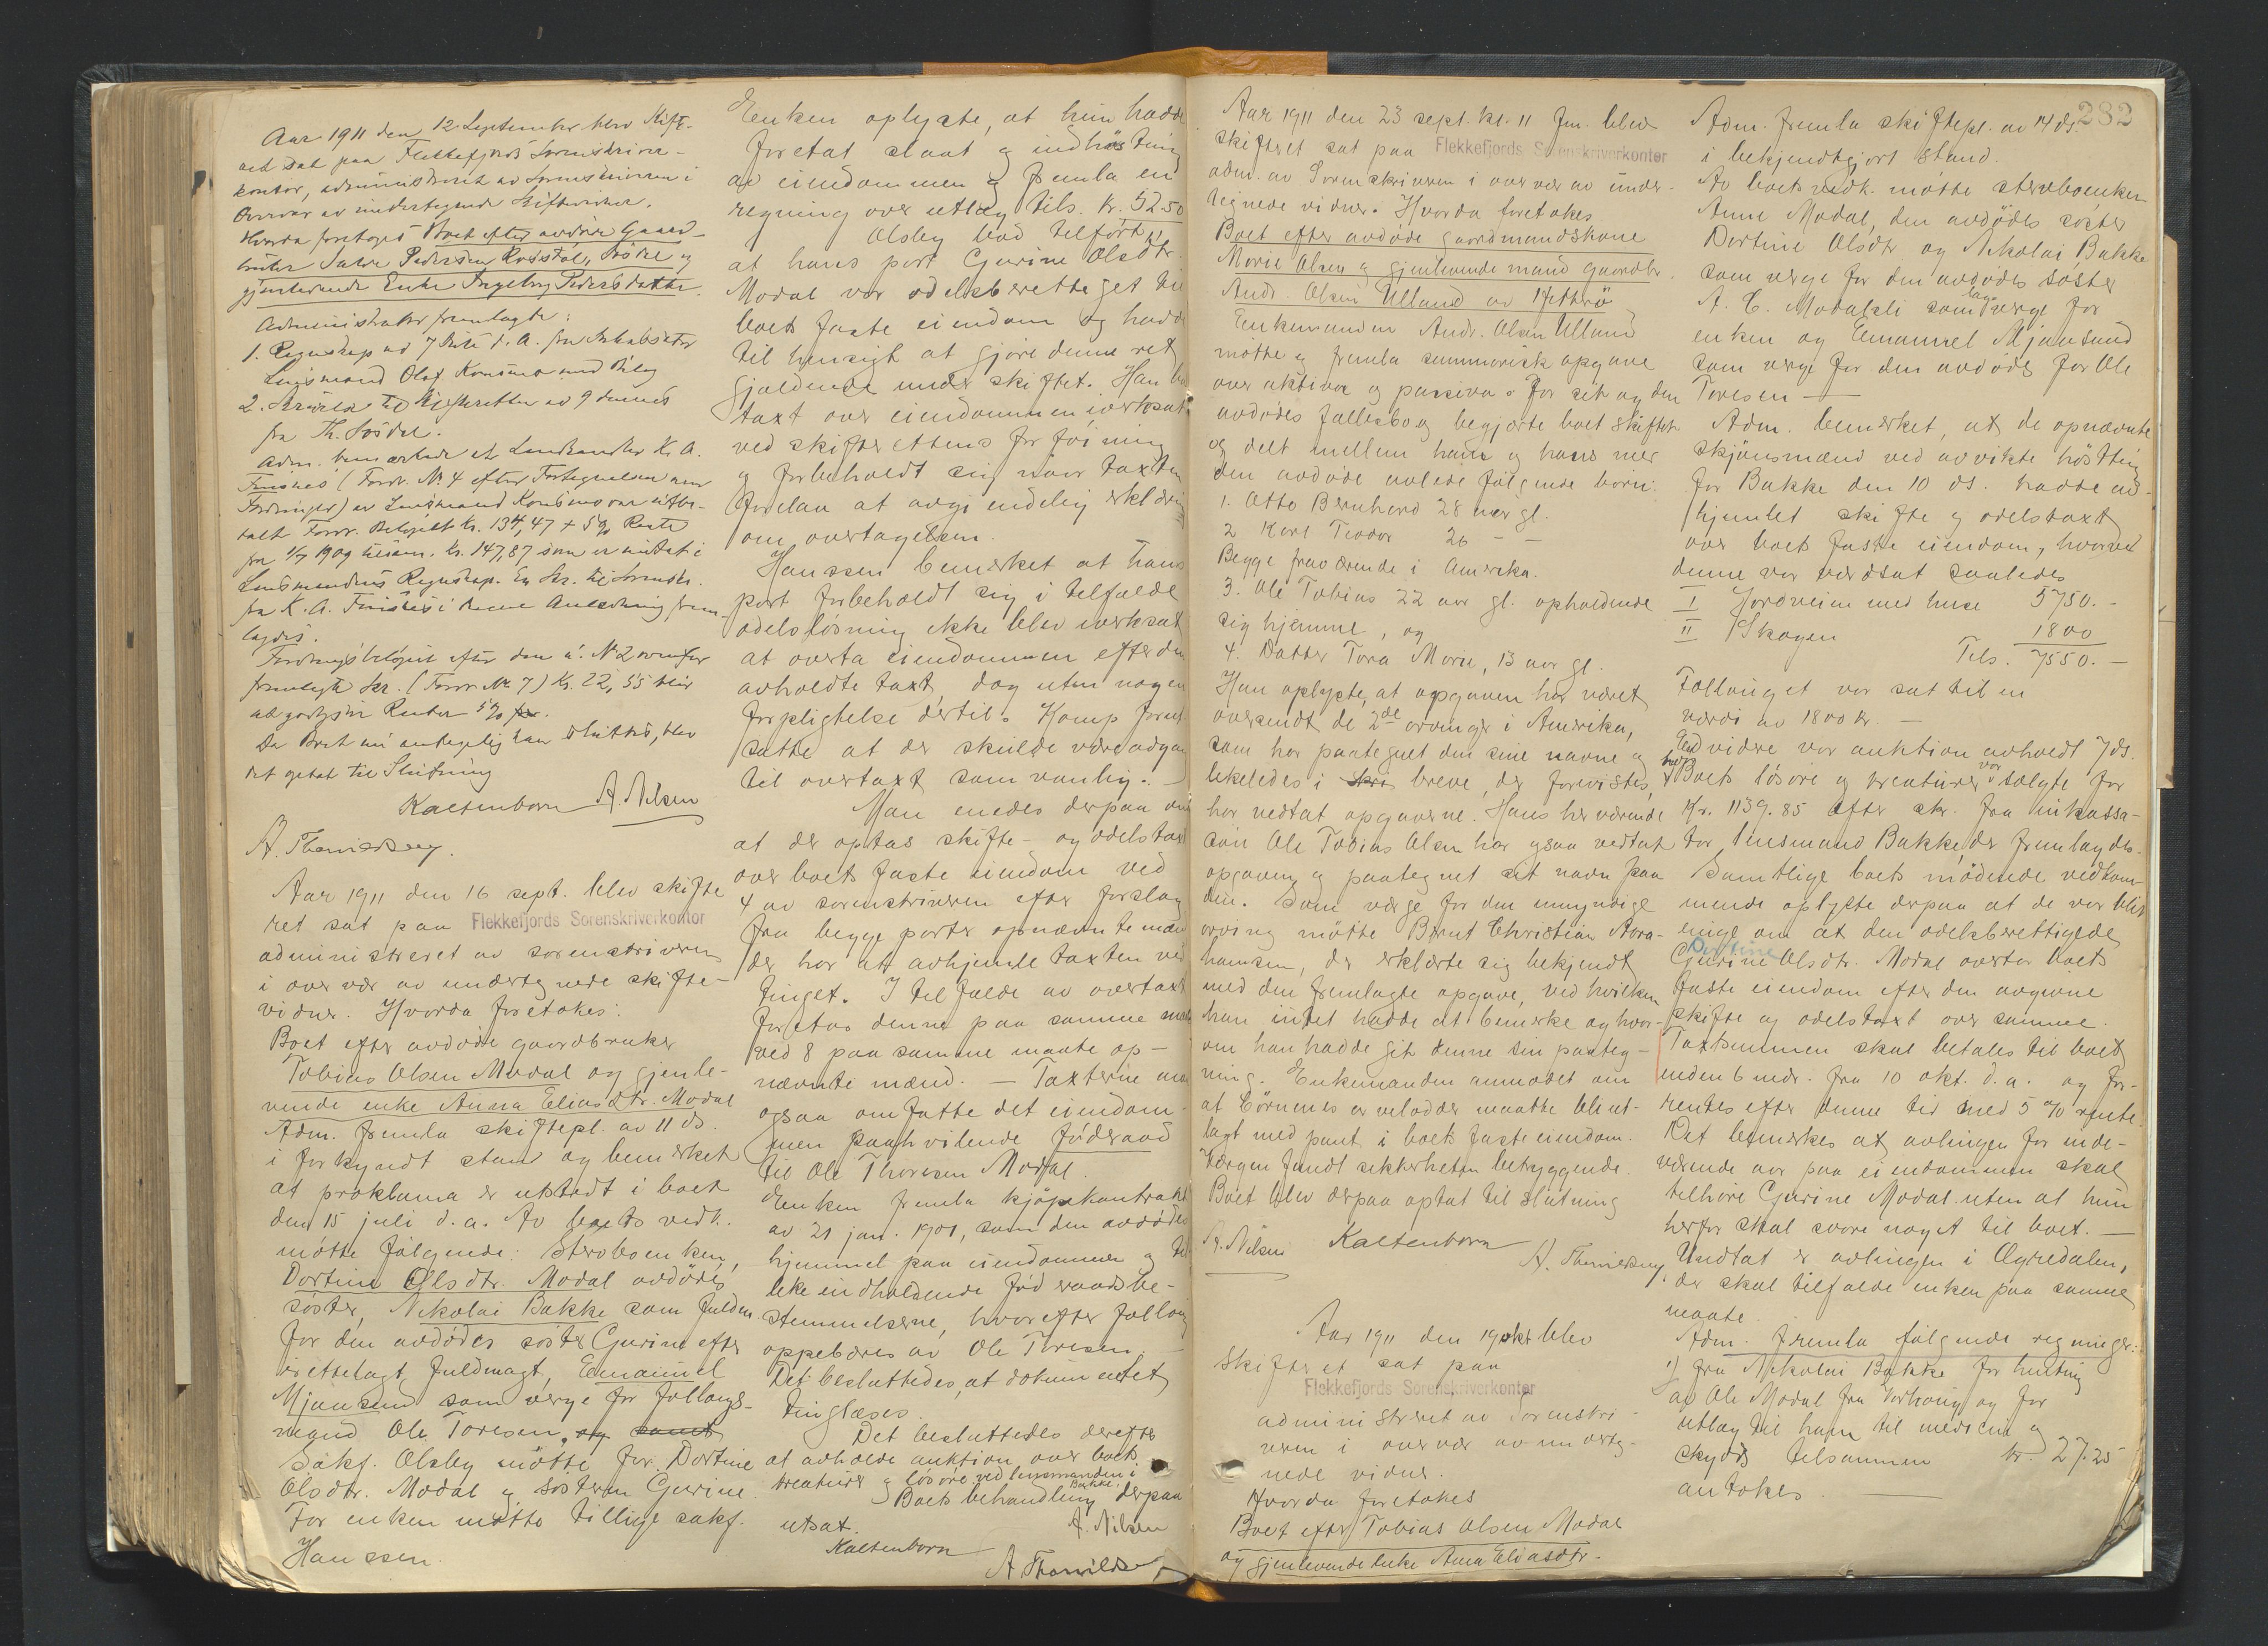 Aar 1911 den 12 September blev Skifte-
ret sat paa Flekkefjords Sorenskriver-
kontor, administreret av Sorenskriveren i
Overvær av undertegnede Skiftevidner.
Hvorda foretoges Boet efter avdøde Gaard-
bruker Salve Pedersen Rossevatn, og
gjenlevende Enke Ingeborg Pedersdatter.
Administrator fremlagde:
1. Regnskap av 7 ds. d. A. fra Inkassator
Lensmand Olaf Konsmo med Bilag
2. Skrivelse til Skifteretten av 9 dennes
fra Th.
Adm. bemærkede at Landhandler K. A.
(Fordr. No 4 efter Fortegnelsen over
Fordringer) av Lensmand Konsmo var utbe-
talt Fordr. Beløpet Kr. 134,47 + 5% Rente
fra 1/7 1909 tilsam. Kr. 147,87 som er inntat i
Lensmandens Regnskap. En Skr. til Sorenskr.
fra K. A. i denne Anledning frem-
lagdes.
Fordringsbeløpet efter den u. No 2 ovenfor
fremlagte Skr. (Fordr. No 7) Kr. 22,55 blir
at godtgjøre Renter 5%
Da Boet nu antagelig kan sluttes, blev
det optat til Slutning
Kaltenborn A. Nilsen
A. Thorvildsen
Aar 1911 den 16 sept. blev skifte
ret sat paa Flekkefjords Sorenskriverkontor
administreret av sorenskriveren
i overvær av undertegnede skifte-
vidner. Hvorda foretokes:
Boet efter avdøde gaardbruker
Tobias Olsen Modal og gjenle-
vende enke Anna Eliasdtr. Modal
Adm. fremla skiftepl. av 11 ds.
i forkyndt stand og bemerket
at proklama er utstedt i boet
den 15 juli d.a. Av boets vedk.
møtte følgende: Sterboenken,
Dortine Olsdtr. Modal avdødes
søster, Nikolai Bakke som fuldm.
for den avdødes søster Gurine efter
irettelagt fuldmagt, Emanuel
Mjaasund som verge for follaugs-
mand Ole Toresen, og samt
Sakf. Olsby møtte for Dortine
Olsdtr. Modal og søsteren Gurine.
For enken møtte tillige sakf.
Hanssen.
Enken oplyste, at hun hadde
foretat slaat og indhøstning
av eiendommen og fremla en
regning over utlæg tils. kr. 52.50
Olsby bad tilført,
at hans part Gurine Olsdtr.
Modal var odelsberettiget til
boets faste eiendom og hadde
til hensigt at gjøre denne ret
gjældende under skiftet. Han
taxt over eiendommen iverksat
ved skifterettens forføining
og forbeholdt sig naar taxten
forelaa at avgi endelig erklæring
om overtagelsen.
Hanssen bemerket at hans
part forbeholdt sig i tilfælde
odelsløsning ikke blev iverksat
at overta eiendommen efter den
avholdte taxt, dog uten nogen
forpligtelse dertil. Komp. forut-
satte at der skulde være adgang
til overtaxt som vanlig. —
Man enedes derpaa om
at der optas skifte- og odelstaxt
over boets faste eiendom ved
4 av sorenskriveren efter forslag
fra begge parter opnævnte mænd
der har at avhjemle taxten ved
tinget. I tilfælde av overtaxt
foretas denne paa samme maate
ved 8 paa samme maate op-
nævnte mænd. — Taxterne maa
ogsaa omfatte det eiendom-
men paahvilende føderaad
til Ole Thoresen Modal.
Enken fremla kjøpekontrakt
av 21 jan. 1901, som den avdødes
hjemmel paa eiendommen og til-
like indholdende føderaadsbe-
stemmelserne, hvorefter follaug
oppebæres av Ole Toresen. —
Det besluttedes, at dokumentet
tinglæses.
Det besluttedes derefter
at avholde auktion over boets
kreaturer og løsøre ved lensmanden i
Bakke.
Boets behandling derpaa
utsat.
A. Nilsen
Kaltenborn
A. Thorvildsen
282
Aar 1911 den 23 sept. kl. 11 fm. blev
skifteret sat paa Flekkefjords Sorenskriverkontor
adm. av Sorenskriveren i overvær av under-
tegnede vidner. Hvorda foretokes
Boet efter avdøde gaardmandskone
Marie Olsen og gjenlevende mand gaardbr.
Andr. Olsen Ulland av Hitterø
Enkemanden Andr. Olsen Ulland
møtte og fremla summarisk opgave
over aktiva og passiva for sit og den
avdødes fællesbo og begjærte boet skiftet
og delt mellem ham og hans med
den avdøde avlede følgende børn:
1. Otto Bernhard 28 aar gl.
2 Karl Teodor 26 — —
Begge fraværende i Amerika.
3. Ole Tobias 22 aar gl. opholdende
sig hjemme, og
4. Datter Tora Marie, 13 aar gl.
Han oplyste, at opgaven har været
oversendt de 2de arvinger i Amerika,
som har paategnet den sine navne og
likeledes i skri breve, der forevistes,
har vedtat opgaverne. Hans her værende
søn Ole Tobias Olsen har ogsaa vedtat
opgaven og paategnet sit navn paa
den. Som værge for den umyndige
arving møtte Bernt Christian Abra-
hamsen, der erklærte sig bekjendt
med den fremlagte opgave, ved hvilken
han intet hadde at bemerke og hvor-
om han hadde git denne sin paateg-
ning. Enkemanden anmodet om
at børnenes arvelodder maatte bli ut-
lagt med pant i boets faste eiendom.
Værgen fandt sikkerheten betryggende.
Boet blev derpaa optat til slutning
A. Nilsen Kaltenborn
A. Thorvildsen
Aar 1911 den 19 okt blev
skifteret sat paa
Flekkefjords Sorenskriverkontor
administreret av Sorenskri-
veren i overvær av underteg-
nede vidner.
Hvorda foretokes
Boet efter Tobias Olsen Modal
og gjenlevende enke Anna Eliasdtr.
Adm. fremla skiftepl. av 14 ds.
i bekjendtgjort stand.
Av boets vedk. møtte sterboenken
Anne Modal, den avdødes søster
Dortine Olsdtr og Nikolai Bakke
som verge for den avdødes søster
A. E. Modalsli som lagverge for
enken og Emanuel Mjaasund
som verge for den avdødes far Ole
Toresen —
Adm. bemerket, at de opnævnte
skjønsmænd ved avvikte høstting
for Bakke den 10 ds. hadde av-
hjemlet skifte og odelstaxt
over boets faste eiendom, hvorved
denne var værdsat saaledes
I Jordveien med huse 5750.-
II Skogen 1800
Tils. 7550.-
Follauget var sat til en
værdi av 1800 kr. —
End videre var auktion avholdt 7 ds.
hvor Boets løsøre og kreaturer var solgte for
Kr. 1139.85 efter skr. fra inkassa-
tor lensmand Bakke der fremlagdes.
Samtlige boets mødende vedkom-
mende oplyste derpaa at de var blit
enige om at den odelsberettigede
Dortine
Gurine Olsdtr. Modal overtar boets
faste eiendom efter den avgivne
skifte og odelstaxt over samme.
Taxtsummen skal betales til boet
inden 6 mdr. fra 10 okt. d.a. og for-
rentes efter denne tid med 5 % rente.
Det bemerkes at avlingen for inde-
værende aar paa eiendommen skal
tilhøre Gurine Modal uten at hun
herfor skal svare noget til boet. —
Undtat er avlingen i Ogredalen,
der skal tilfalde enken paa samme
maate.
Adm. fremla følgende regninger:
1) fra Nikolai Bakke for henting
av Ole Modal fra Varhaug og for
utlæg til ham til medicin og
skyds tilsammen kr. 27.25
antokes.